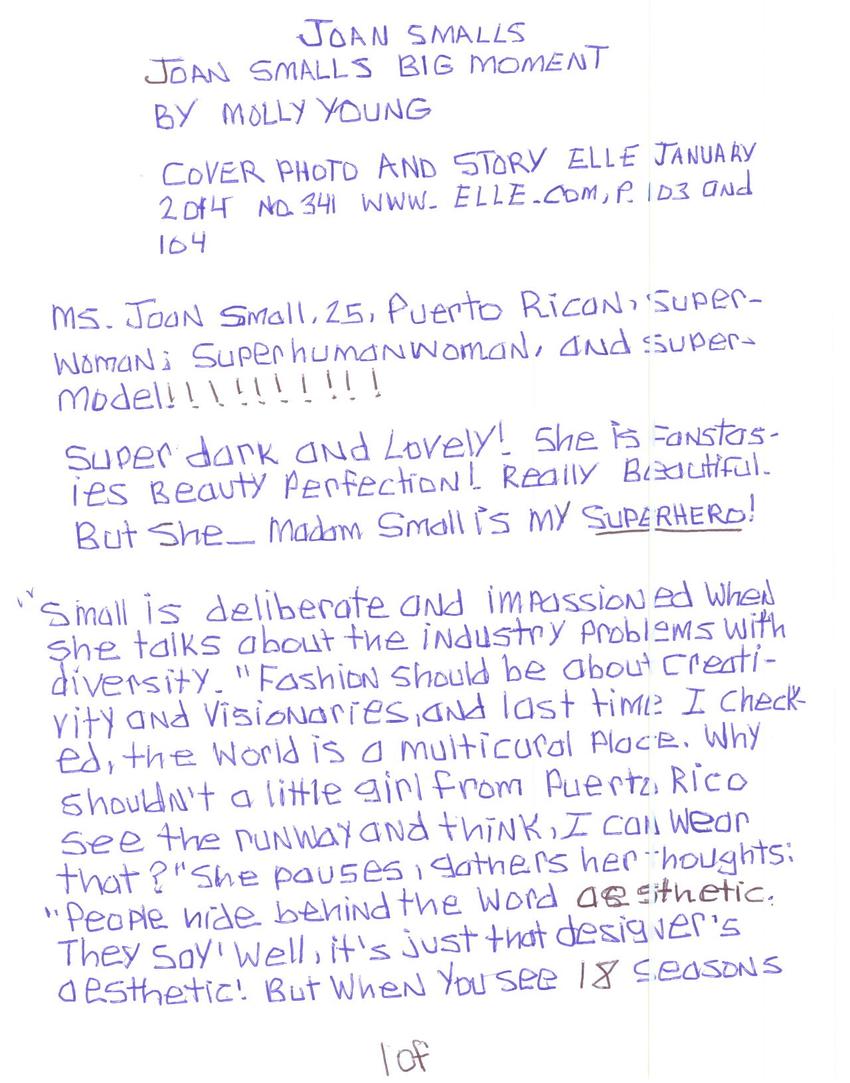 JOAN SMALLS
JOAN SMALLS BIG MOMENT
BY MOLLY YOUNG
COVER PHOTO AND STORY ELLE JANUARY
2014 NO. 341 WWW. ELLE.COM, P. 103 and
104
MS. Joan Small, 25, Puerto Rican, Super-
Woman; Superhumanwoman, and super-
Model!!!!!!!!!!
Super dark and Lovely! She is Fanstas-
ies Beauty Perfection! Really Beautiful.
But She_ Madam Small is my SUPERHERO!
"Small is deliberate and impassioned when
she talks about the industry problems with
diversity. "Fashion should be about creati-
vity and visionaries, and last time I check-
ed, the world is a multicural place. Why
shouldn't a little girl from Puerto Rico
see the runway and think, I can wear
that?" She pauses, gathers her thoughts:
"People hide behind the word aesthetic.
They say 'Well, it's just that designer's
aesthetic! But when you see 18 seasons
1 of